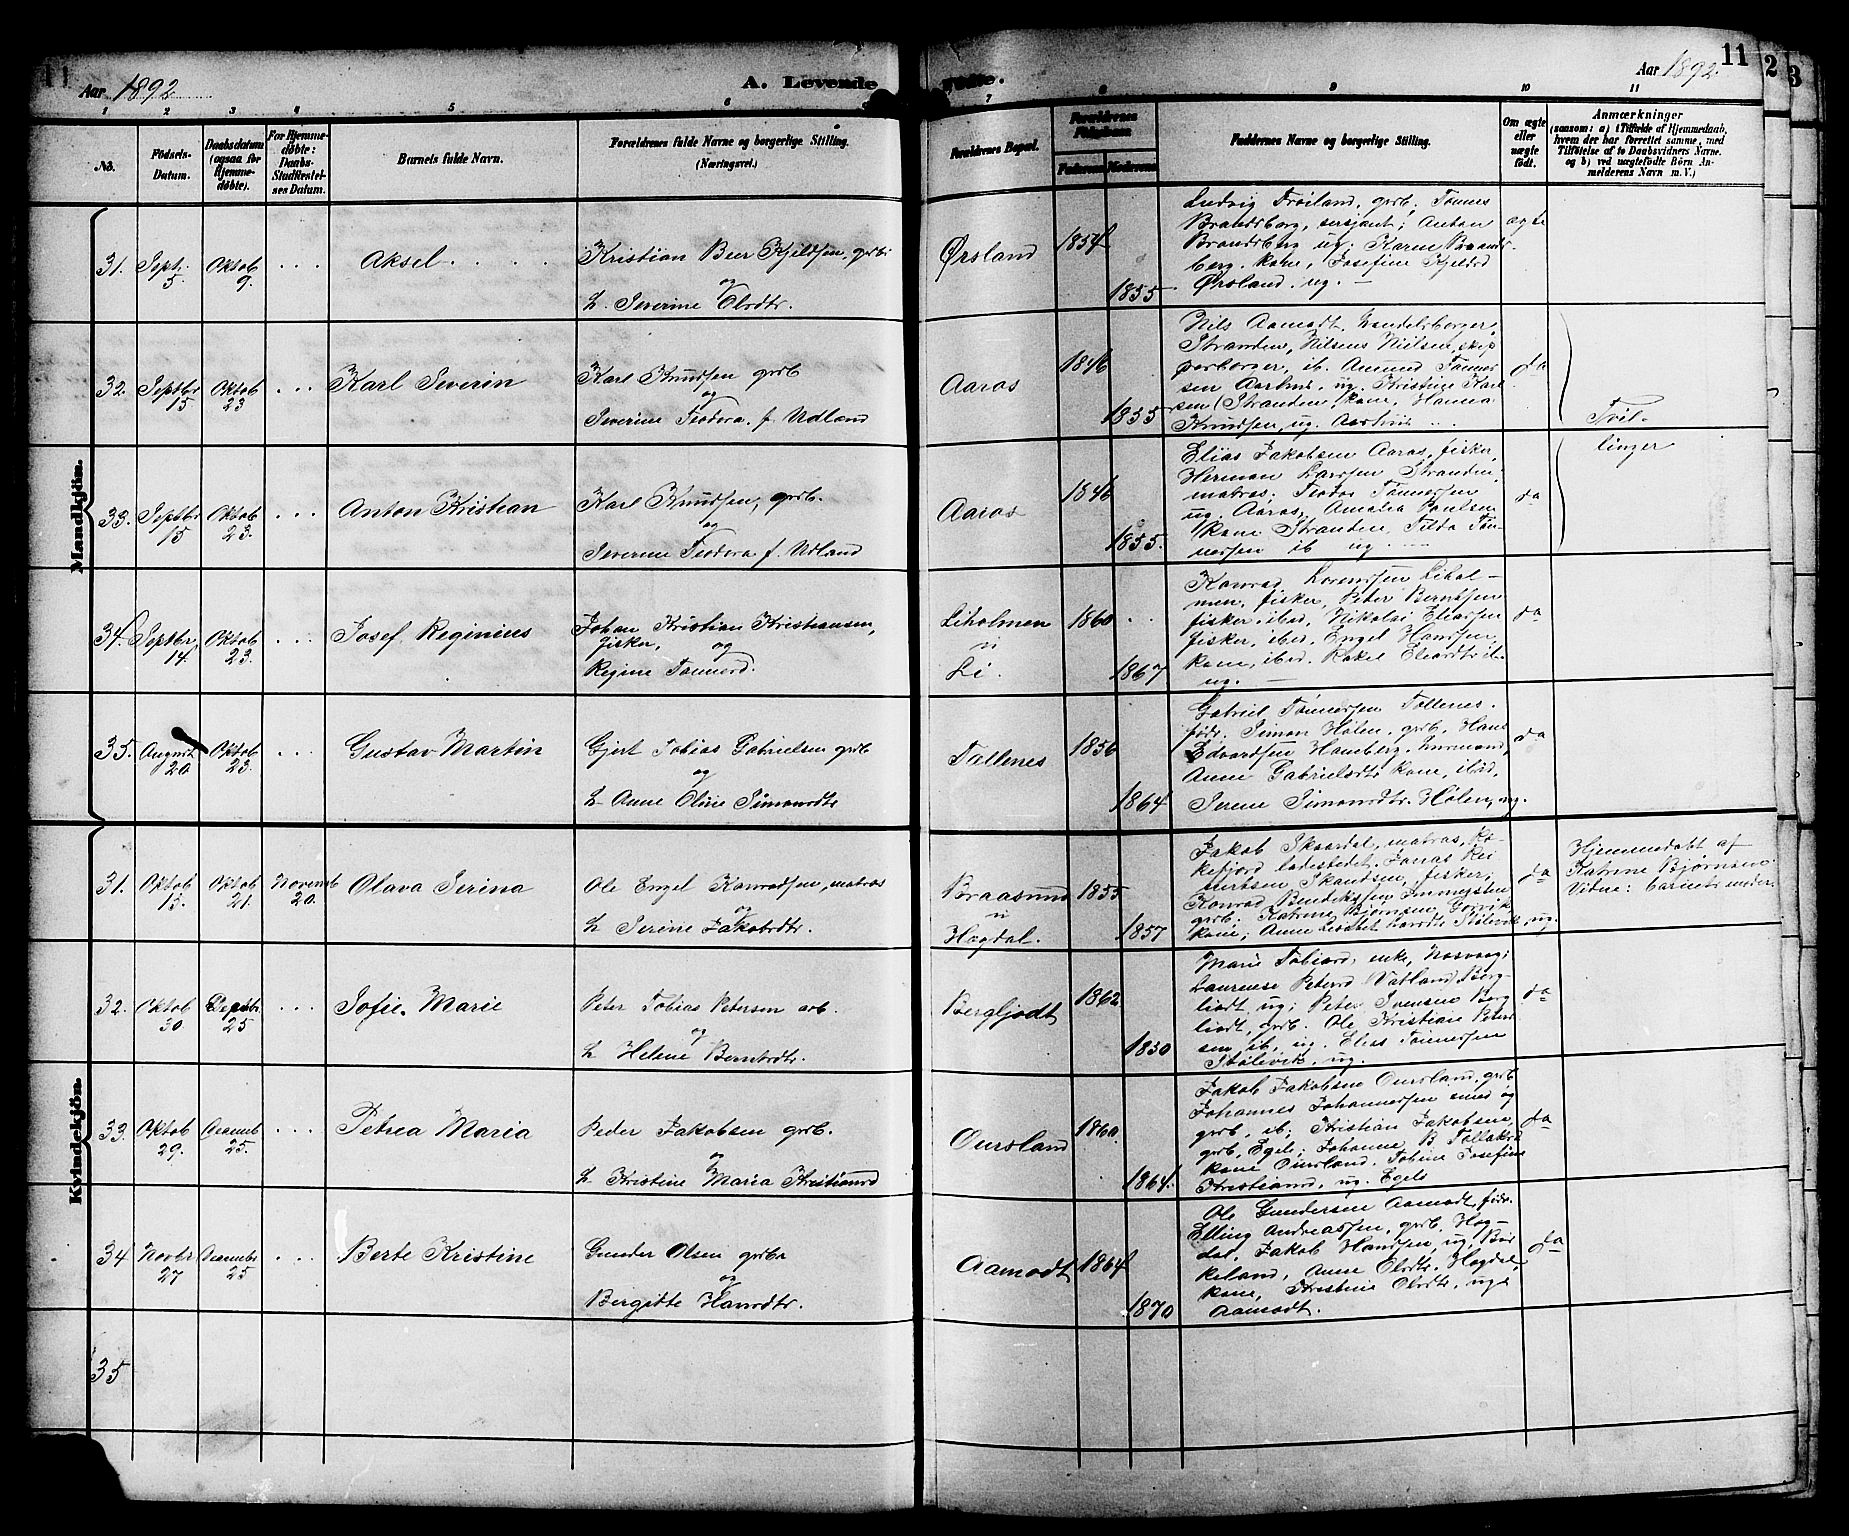 11
Aar 1892
A. Levende
Fødte.
Aar 1892.
11
2
3
1 2 3 4 5 6 7 8 9 10 11
No.
Fødsels-
Datum.
Daabsdatum
(ogsaa for
Hjemme-
døbte).
For Hjemme-
døbte:
Daabs-
Stadfæstel-
ses Datum.
Barnets fulde Navn.
Forældrenes fulde Navne og borgerlige Stilling.
(Næringsvei.)
Forældrenes Bopæl.
Forældrenes
Fødselsaar.
Faderens
Moderens
Faddernes Navne og borgerlige Stilling.
Om ægte
eller
uægte
født.
Anmærkninger
(saasom: a) i Tilfælde af Hjemmedaab,
hvem der har forrettet samme, med
Tilføielse af to Daabsvidners Navne.
og b) ved uægtefødte Børn An-
melderens Navn m. V.)
Mandkjön.
31. Septr. 5 Oktob 9. . . . Aksel . . . .
Kristian Beer Kjeldsen, grbr
og
h. Severine Olsdtr.
Ørsland 1854 1855
Ludvig Frøiland, grbr. Tønnes
Brandsberg, sersjant; Anton
Brandsberg ug; Karen Brands-
berg. kone, Josefine Kjeldsd
Ørsland. ug. —
ægte
32. Septbr 15 Oktob 23 . . . Karl Severin
Karl Knudsen grbr
og
Severine Teodora f. Udland
Aaros 1846 1855
Nils Aamodt, Handelsborger,
Stranden, Nilsens Nielsen, skip
perborger, ib. Amund Tønnes
sen Aarhus, ug. Kristine Karl
sen (Stranden) kone, Hanna
Knudsen, ug. Aarhus
da
Tvil-
33. Septbr 15 Oktob 23. . . . Anton Kristian
Karl Knudsen, grbr.
og
Severine Teodora f. Udland
Aaros 1846 1855.
Elias Jakobsen Aaros, fisker,
Herman Larsen Stranden
matros. Teodor Tønnessen
ug. Aaros, Amalia Poulsen
kone Stranden, Tilda Tøn-
nessen ib ug.
da
linger
34. Septbr 14. Oktob 23. . . . Josef Reginius
Johan Kristian Kristiansen,
fisker, og
Regine Tønnesd.
Liholmen
u
Li. 1860 . . 1867
Konrad Lorentsen Lihol-
men, fisker, Peter Berntsen
fisker, ibid, Nikolai Eliassen
fisker, ibid. Engel Hansen,
kone, ibid. Rakel Eliasdtr ib.
ug. —
da
35. August 20 Oktob 23. . . . Gustav Martin
Gjert Tobias Gabrielsen grbr
og
h. Anne Oline Simonsdtr
Tallenes 1856 1864
Gabriel Tønnessen Tallenes.
fødr. Simon Hølen, grbr. Hans
Edvardsen Hamberg.
Anne Gabrielsdtr kone, ibid,
Serene Simonsdtr. Hølen, ug.
da
Kvindekjön.
31. Oktob 15. Oktob 21. Novemb 20. Olava Serina
Ole Engel Konradsen, matros
og
h. Serine Jakobsdtr.
Braasund
u
Hogdal. 1855 1857
Jakob Skaardal, matros, Re-
kefjord ladestedet. Jonas Rei
nertsen Skandsen, fisker;
Konrad Bendiksen
grbr. Katrine Bjørnsen,
kone; Anne Stølevik, ug.
da
Hjemmedøbt af
Katrine Bjørnsen.
Vitne: barnets moder.
32. Oktob 30. Decbr. 25 . . . Sofie. Marie
Peter Tobias Petersen arb.
og
h. Helene Berntsdtr.
Bergljodt 1862 1830
Marie Tobiasd. enke, Nosvaag;
Laurense Petersd. Vatland, Berg-
liodt, ug; Peter Svensen Berg
liodt, grbr. Ole Kristian Peter
sen ib, ug. Elias Tønnessen
Stølevik, ug.
da
33. Oktob 29. Decemb 25. . . . Petrea Maria
Peder Jakobsen grbr.
og
h. Kristine Maria Kristiansd
Oursland 1860. 1864.
Jakob Jakobsen Oursland. grbr
Johannes Johannessen smed og
grbr, ib; Kristian Jakobsen,
grbr, Egeli; Johanne B Tollaksd
kone Oursland. Tobine Josefine
Kristiansd, ug. Egeli
da
34 Novbr 27 Decembr 25 . . . Berte Kristine
Gunder Olsen grbr
og
Bergitte Hansdtr.
Aamodt 1864 1870
Ole Gundersen Aamodt, fødr.
Elling Andreassen, grbr. Hog-
dal. Jakob Hansen, ug. Bir
keland, Anne Olsdtr. Hogdal,
kone, Kristine Olsdtr, ug.
Aamodt.
da
35